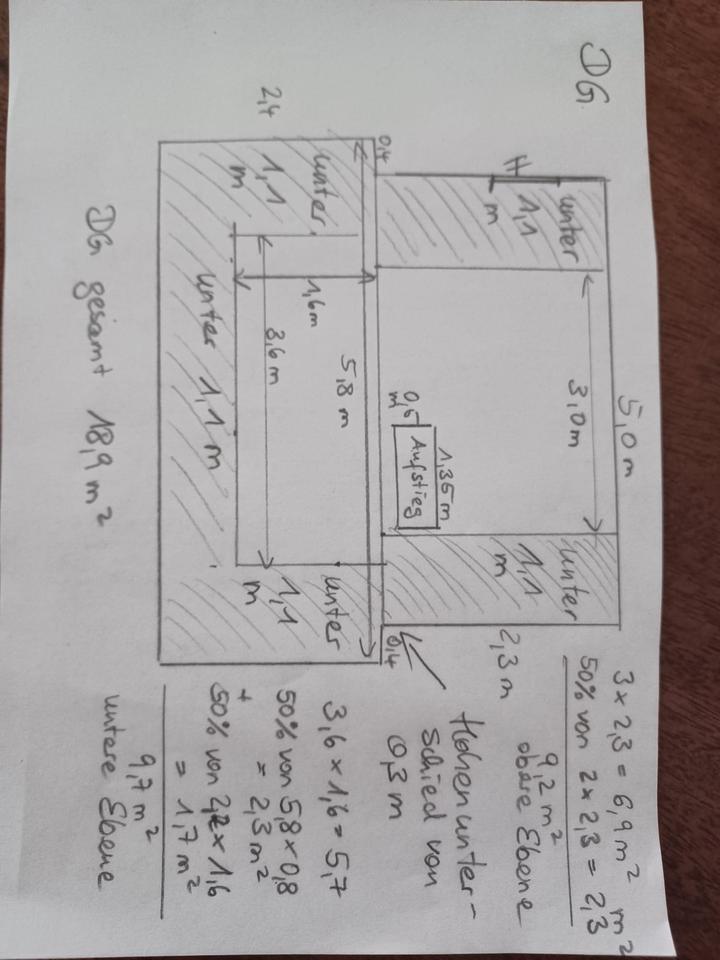 DG
5,0 m
H
unter
1,1
m
3,0m
unter
1,1
m
2,3 m
0,6
m
Aufstieg
1,35 m
0,4
0,4
2,4
unter
1,1
m
5,8 m
1,6m
3,6 m
unter 1,1 m
unter
1,1
m
3 x 2,3 = 6,9 m²
50% von 2 x 2,3 = 2,3 m²
9,2 m²
obere Ebene
Höhenunter-
schied von
0,3 m
3,6 x 1,6 = 5,7
50% von 5,8 x 0,8
= 2,3 m²
+
50% von 2,2 x 1,6
= 1,7 m²
9,7 m²
untere Ebene
DG gesamt 18,9 m²